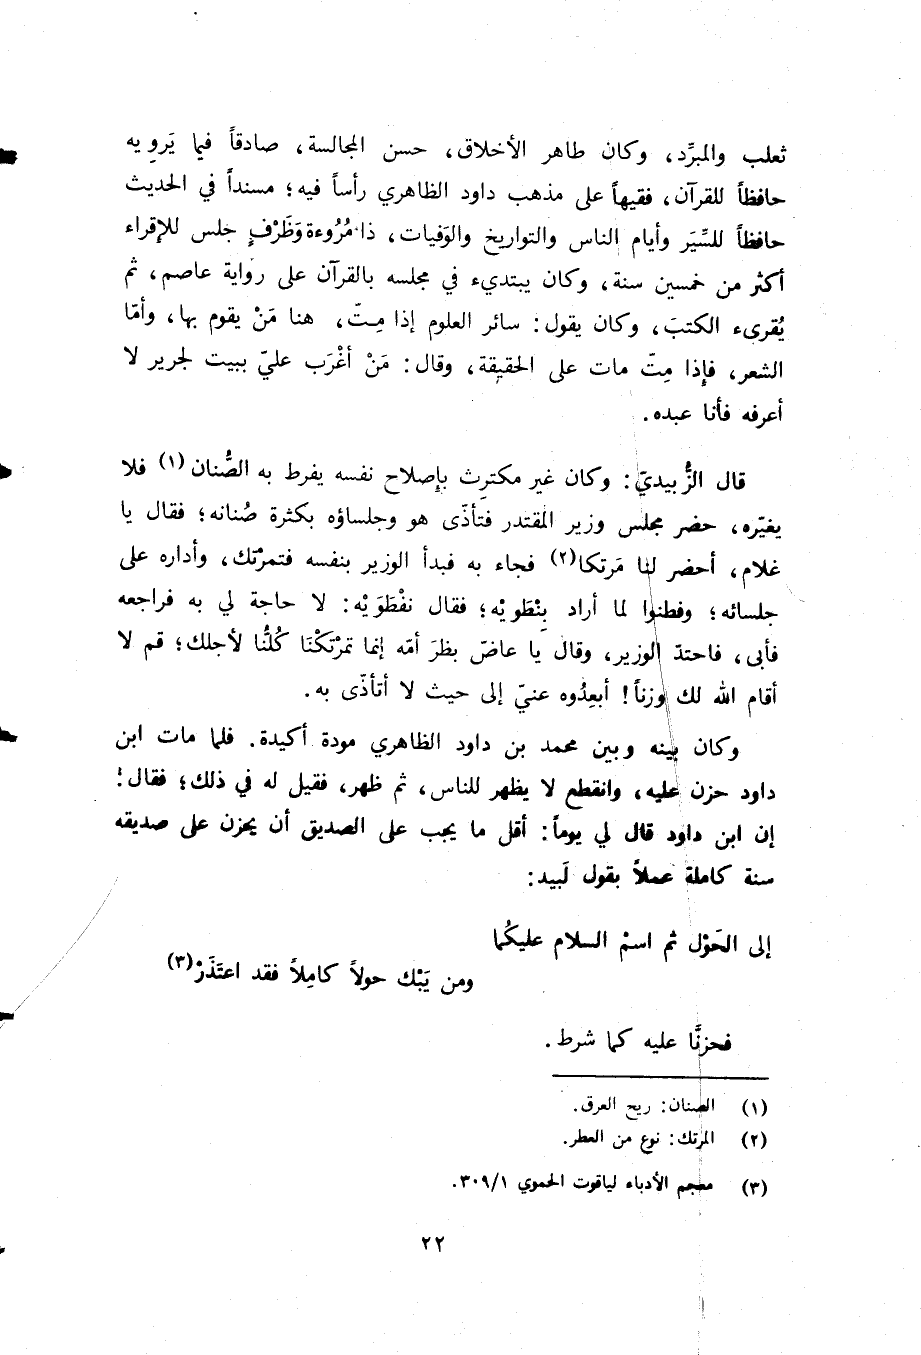 ثعلب والمبرِّد، وكان طاهر الأخلاق، حسن المجالسة، صادقاً فيما يَرويه
حافظاً للقرآن، فقيهاً على مذهب داود الظاهري رأساً فيه؛ مسنداً في الحديث
حافظاً للسِّيَر وأيام الناس والتواريخ والوَفيات، ذا مُرُوءة وَظَرْفٍ جلس للإقراء
أكثر من خمسين سنة، وكان يبتديء في مجلسه بالقرآن على رواية عاصم، ثم
يُقرىء الكتبَ، وكان يقول: سائر العلوم إذا مِـتّ، هنا مَنْ يقوم بها، وأمّا
الشعر، فإذا مِتّ مات على الحقيقة، وقال: مَنْ أغْرَب عليّ ببيت لجرير لا
أعرفه فأنا عبده.
قال الزُّبيديّ: وكان غير مكترِث بإصلاح نفسه يفرط به الصُّنان (١) فلا
يغيّره، حضر مجلس وزير المقتدر فتأذّى هو وجلساؤه بكثرة صُنانه؛ فقال يا
غلام، أحضر لنا مَرتكا(٢) فجاء به فبدأ الوزير بنفسه فتمرْتك، وأداره على
جلسائه؛ وفطنوا لما أراد بِنْطَويْه؛ فقال نفْطَوَيْه: لا حاجة لي به فراجعه
فأبى، فاحتدّ الوزير، وقال يا عاضّ بظرَ أمّه إنما تمرْتكْنَا كُلُّنا لأجلك؛ قم لا
أقام الله لك وزناً! أبعِدُوه عنيّ إلى حيث لا أتأذّى به.
وكان بينه وبين محمد بن داود الظاهري مودة أكيدة. فلما مات ابن
داود حزن عليه، وانقطع لا يظهر للناس، ثم ظهر، فقيل له في ذلك؛ فقال!
إن ابن داود قال لي يوماً: أقل ما يجب على الصديق أن يحزن على صديقه
سنة كاملة عملاً بقول لَبيد:
إلى الحَوْل ثم اسمْ السلام عليكُما
ومن يَبْك حولاً كامِلاً فقد اعتَذَرْ(٣)
فحزنَّا عليه كما شرط.
(١) الصنان: ريح العرق.
(٢) المرتك: نوع من العطر.
(٣) معجم الأدباء لياقوت الحموي ٣٠٩/١.
٢٢